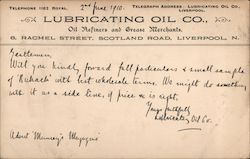 TELEPHONE 1162 ROYAL. 2nd June 1910. TELEGRAPH ADDRESS LUBRICATING OIL CO., LIVERPOOL.
LUBRICATING OIL CO.,
Oil Refiners and Grease Merchants.
6, RACHEL STREET, SCOTLAND ROAD, LIVERPOOL, N.
Gentlemen,
Will you kindly forward full particulars & small sample
of "Buhach" with best wholesale terms. We might do something
with it as a side line, if price is right.
Yours faithfully
Lubricating Oil Co.
Advert "Munsey's Magazine"